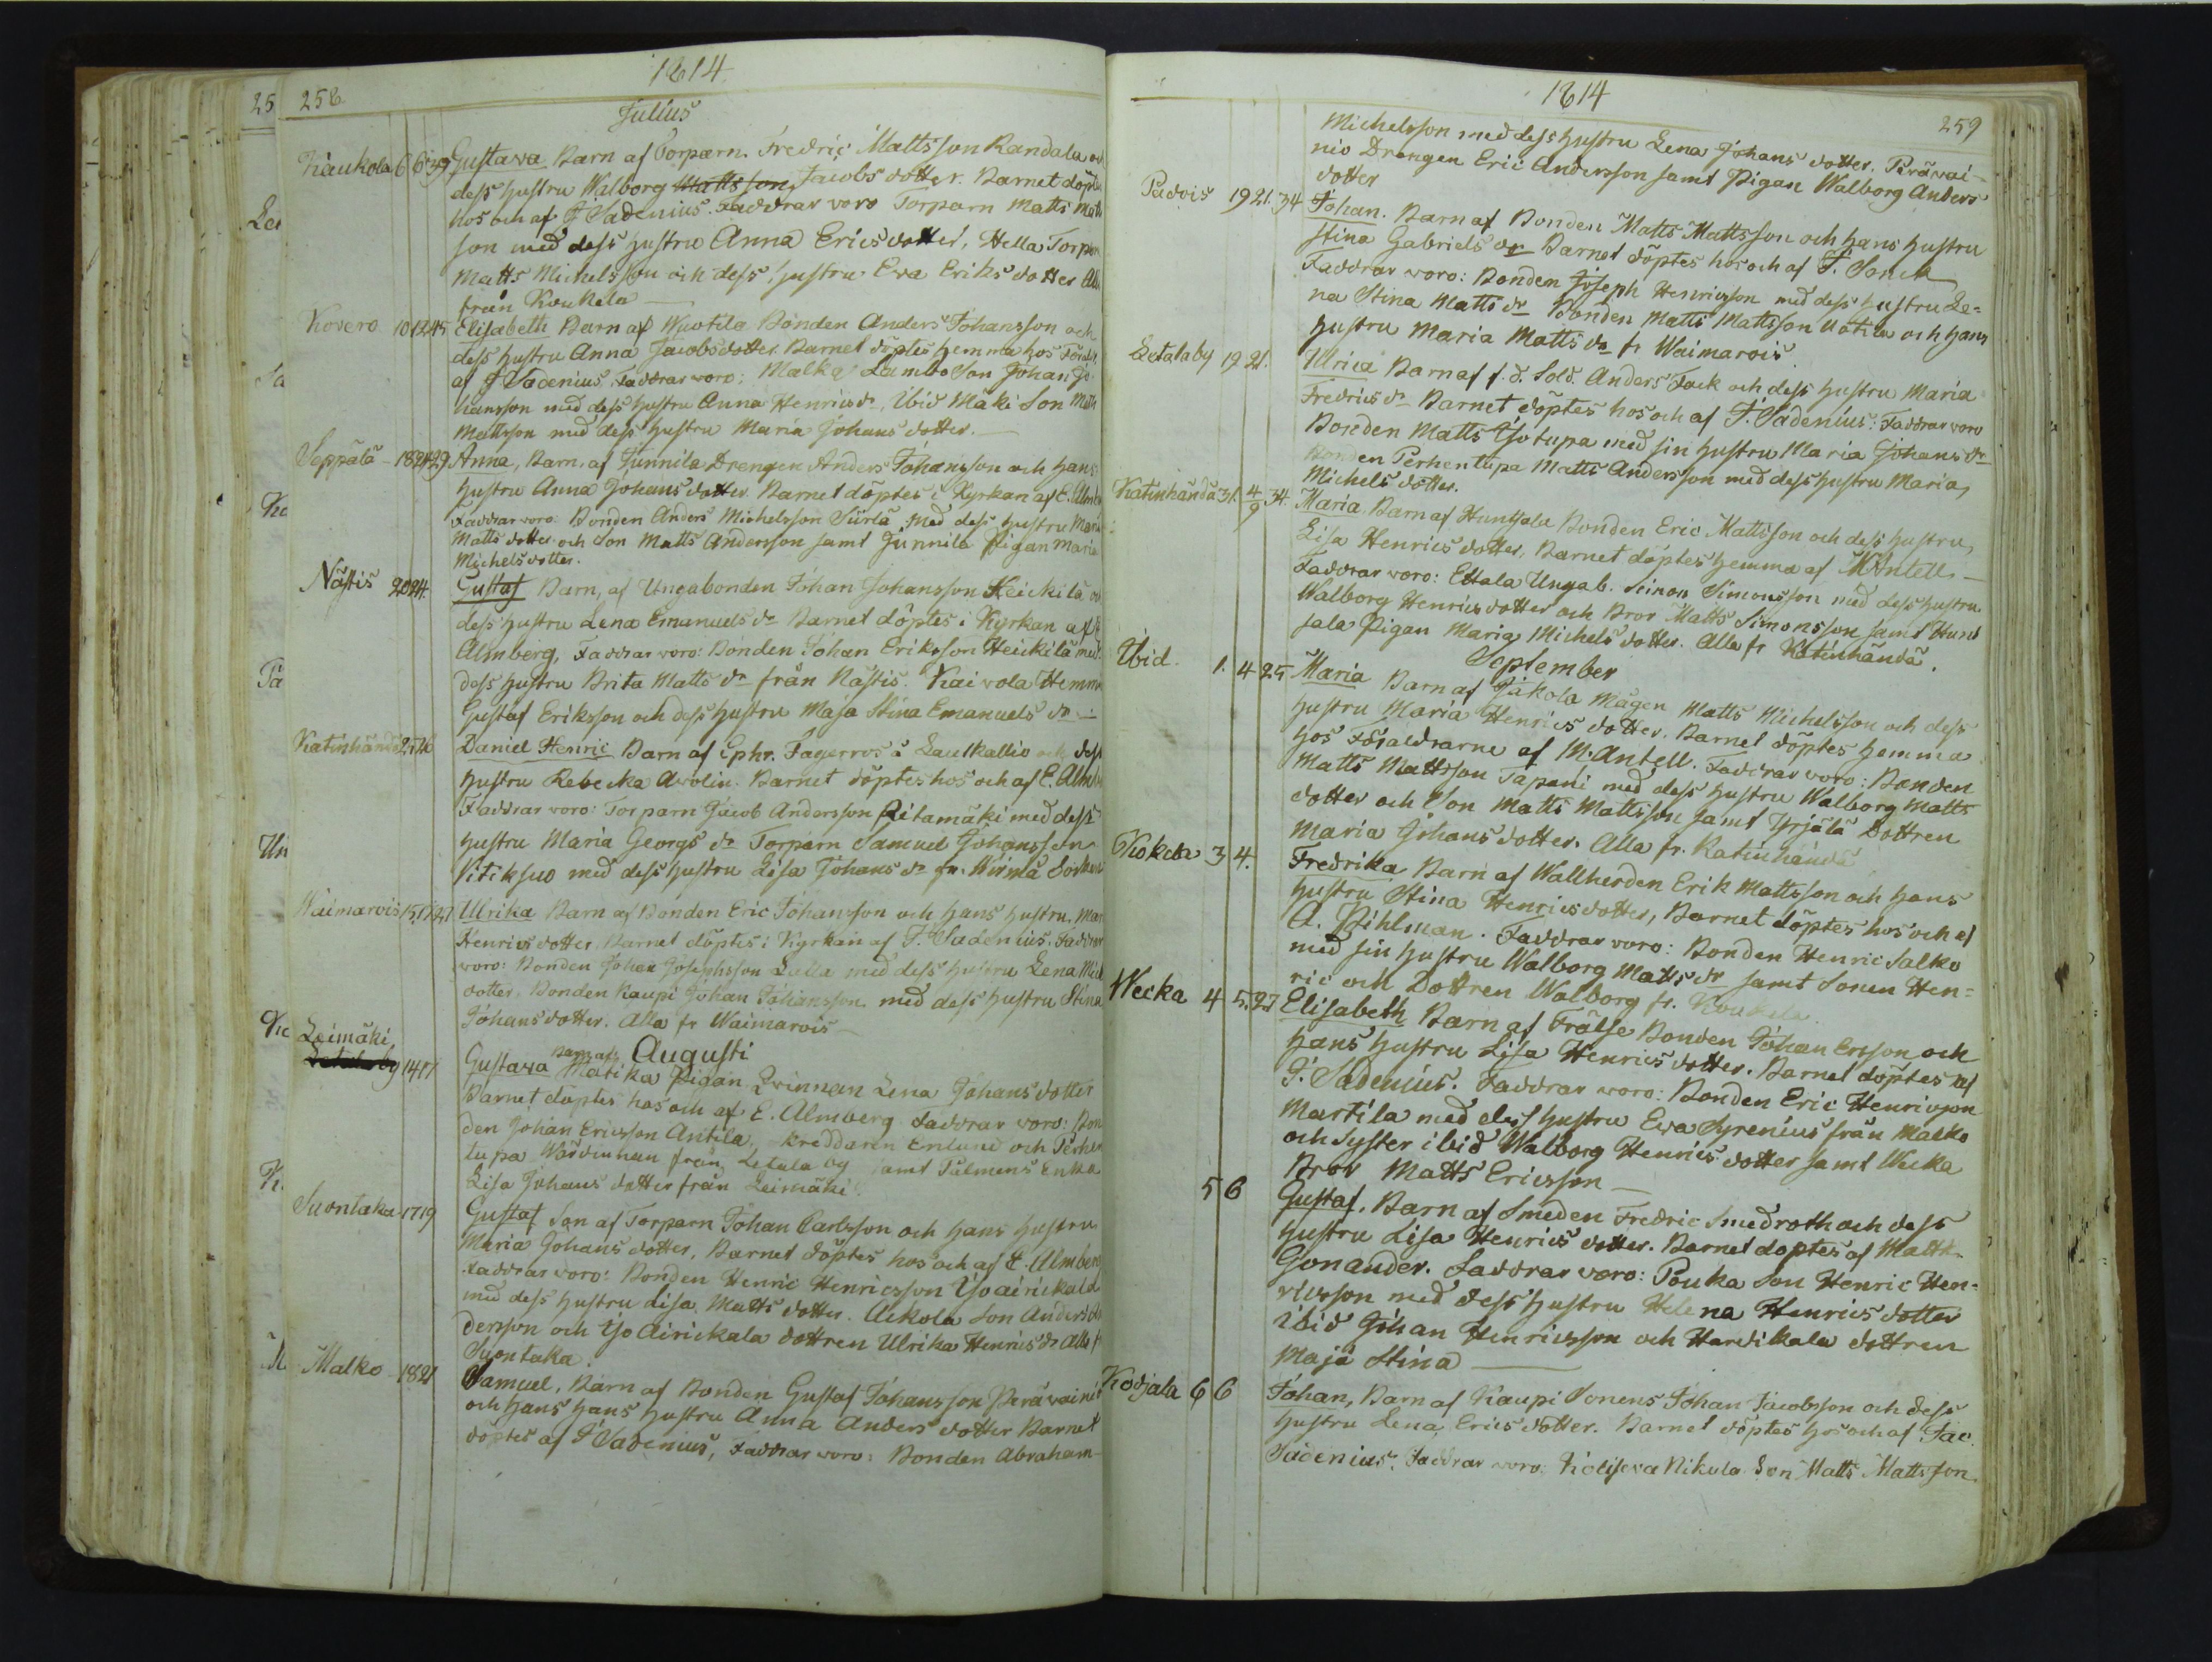 1814
258
Julius
Kaukola 6 6 39 Gustava, Barn af Torparn. Fredric Mattsson Randala
dess hustru Walborg Mattsson, Jacobs dotter. Barnet döptes
hos och af F. Sadenius. Faddrar voro Torparn Matts
son med dess hustru Anna Erics dotter, Hella Torparn
Matts Michelsson och dess hustru Eva Eriks dotter
från Koukela
Kovero 10 12 45 Elisabeth Barn af Wuotila Bonden Anders Johansson och
dess hustru Anna Jacobsdotter. Barnet döptes hemma hos
af F Sadenius, Faddrar voro: Malko Lambo Son Johan Jo
hansson med dess hustru Anna Henrics dr, Ibid Mäki Son
Mattsson med dess hustru Maria Johans dotter.
Seppälä 18 24 29 Anna, Barn, af Junnila Drengen Anders Johansson och hans
hustru Anna Johans dotter. Barnet döptes i Kyrkan af E.
Faddrar voro Bonden Anders Michelsson Siirla med dess hustru
Matts dotter och Son Matts Andersson samt Junnila Pigan Maria
Michelsdotter.
Nästis 20 24. Gustaf Barn, af Ungabonden Johan Johansson Heickilä
dess hustru Lena Emanuels dr Barnet döptes i Kyrkan af
Almberg, Faddrar voro: Bonden Johan Eriksson Heickilä med
dess hustru Brita Matts dr från Nästis. Kaivola
Gustaf Eriksson och dess hustru Maja Stina Emanuels dr
Katinhändä 25 26 Daniel Henric Barn af Ephr. Fagerros å Laulkallio och dess
hustru Rebecka Avolin. Barnet döptes hos och af E.
Faddrar voro: Torparn Jacob Andersson Ritamäki med dess
hustru Maria Georgs dr Torparn Samuel Johansson
Vitiksuo med dess hustru Lisa Johans dr fr. Wirmä
Waimarois 15 17 27 Ulrika Barn af Bonden Eric Johansson och hans hustru
Henrics dotter, Barnet döptes i Kyrkan af F. Sadenius. Faddrar
voro: Bonden Johan Josephsson Lulla med dess hustru Lena
dotter, Bonden Kaupi Johan Johansson med dess hustru Stina
Johans dotter. Alla fr Waimarois
Augusti
Leimäki, Letalaby 14 17 Gustava Barn af Matika Pigan Qvinnan Lena Johans dotter
Barnet döptes hos och af E. Almberg Faddrar voro: Bon
den Johan Ericsson Antila, Skreddaren Enlund och Perhen
tupa från Letala by samt Pelmens Enka
Lisa Johans dotter från Leimäki.
Suontaka 17 19 Gustaf Son af Torparn Johan Carlsson och hans hustru
Maria Johans dotter, Barnet döptes hos och af E. Almberg
Faddrar voro: Bonden Henric Henricsson Yso airickala
med dess hustru Lisa Matts dotter. Ackola Son Anders
dersson och Yso Airickala dottren Ulrika Henrics dr Alla fr
Suontaka.
Malko 18 21 Samuel, Barn af Bonden Gustaf Johansson Perävainio
och hans hans hustru Anna Anders dotter Barnet
döptes af F Sadenius, Faddrar voro: Bonden Abraham
1814
259
Michelsson med dess hustru Lena Johans dotter. Perävai-
nio Drengen Eric Andersson samt Pigan Walborg Anders
dotter
Padois 19 21. 34 Johan. Barn af Bonden Matts Mattsson och hans hustru
Stina Gabriels dr Barnet döptes hos och af F. Sonck
Faddrar voro: Bonden Joseph Henricsson med dess hustru Le=
na Stina Matts dr Bonden Matts Mattsson Uotila och hans
hustru Maria Matts dr fr Waimarois
Letalaby 19 21. Ulrica Barn af f. d. Sold. Anders Fack och dess hustru Maria
Fredrics dr Barnet döptes hos och af F. Sadenius: Faddrar voro
Bonden Matts Yso tupa med sin hustru Maria Johans dr
Bonden Perhen tupa Matts Andersson med dess hustru Maria,
Michels dotter.
Katinhändä 31. 4/9 34. Maria Barn af Huntsala Bonden Eric Mattsson och dess hustru,
Lisa Henrics dotter, Barnet döptes hemma af M Antell —
Faddrar voro: Ettala Ungab. Simon Simonsson med dess hustru
Walborg Henrics dotter och Bror Matts Simonsson samt Hunt
sala Pigan Maria Michels dotter. Alla fr Katinhändä.
September
Ibid. 1. 4 25 Maria Barn af Jäkola Mågen Matts Michelsson och dess
hustru Maria Henrics dotter. Barnet döptes hemma
hos Föräldrarne af M. Antell. Faddrar voro: Bonden
Matts Mattsson Tapani med dess hustru Walborg Matts
dotter och Son Matts Mattsson samt Yrjälä Dottren
Maria Johans dotter. Alla fr. Katinhändä
Kokela 3 4. Fredrika Barn af Wallherden Erik Mattsson och hans
hustru Stina Henricsdotter, Barnet döptes hos och af
A. Pihlman. Faddrar voro: Bonden Henric Salko
med sin hustru Walborg Matts dr samt Sonen Hen=
ric och Dottren Walborg fr. Koukela.
Wecka 4 5. 27 Elisabeth Barn af Frälse Bonden Johan Ersson och
hans hustru Lisa Henrics dotter. Barnet döptes af
F. Sadenius. Faddrar voro: Bonden Eric Henricsson
Martila med dess hustru Eva Syrenius från Malko
och Syster ibid Walborg Henrics dotter samt Wecka
Bror Matts Ericsson —
5 6 Gustaf, Barn af Smeden Fredric Smedroth och dess
hustru Lisa Henrics dotter. Barnet döptes af Matth.
Gonander. Faddrar voro: Pouka Son Henric Hen=
ricsson med dess hustru Helena Henrics dotter
ibid Johan Henricsson och Hardikala dottren
Maja Stina —
Kodjala 6 6 Johan, Barn af Kaupi Sonens Johan Jacobsson och dess
hustru Lena Erics dotter. Barnet döptes hos och af Fac.
Sadenius. Faddrar voro: Nikula Son Matts Mattsson